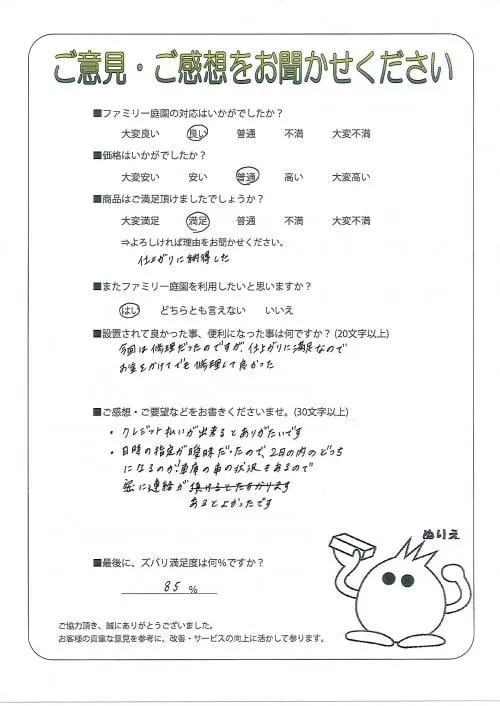 ご意見・ご感想をお聞かせください
■ファミリー庭園の対応はいかがでしたか？
大変良い 良い 普通 不満 大変不満
■価格はいかがでしたか？
大変安い 安い 普通 高い 大変高い
■商品はご満足頂けましたでしょうか？
大変満足 満足 普通 不満 大変不満
⇒よろしければ理由をお聞かせください。
仕上がりに納得した
■またファミリー庭園を利用したいと思いますか？
はい どちらとも言えない いいえ
■設置されて良かった事、便利になった事は何ですか？(20文字以上)
今回は修理だったのですが、仕上がりに満足なので
お金をかけてでも修理して良かった
■ご感想・ご要望などをお書きくださいませ。(30文字以上)
・クレジット払いが出来るとありがたいです
・日時の指定が曖昧だったので、2日の内のどっち
になるのか！車庫の車の状況もあるので
密に連絡が頂けるとたすかります
あるとよかったです
ぬりえ
■最後に、ズバリ満足度は何％ですか？
85 %
ご協力頂き、誠にありがとうございました。
お客様の貴重な意見を参考に、改善・サービスの向上に活かして参ります。